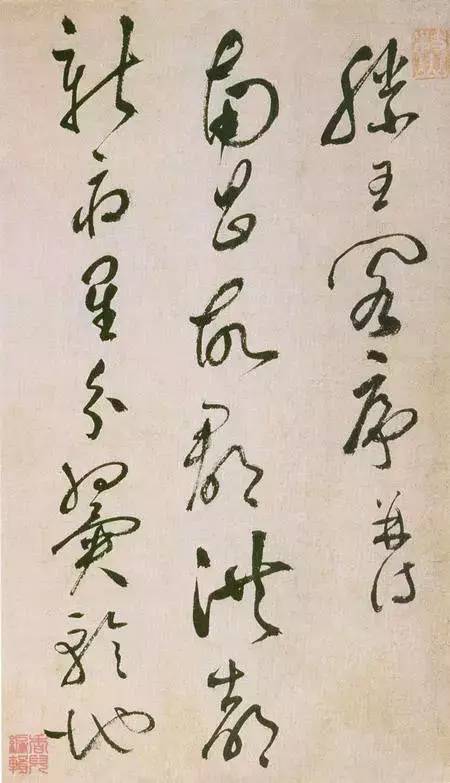 滕王閣序 并詩
南昌故郡洪都
新府星分翼軫地